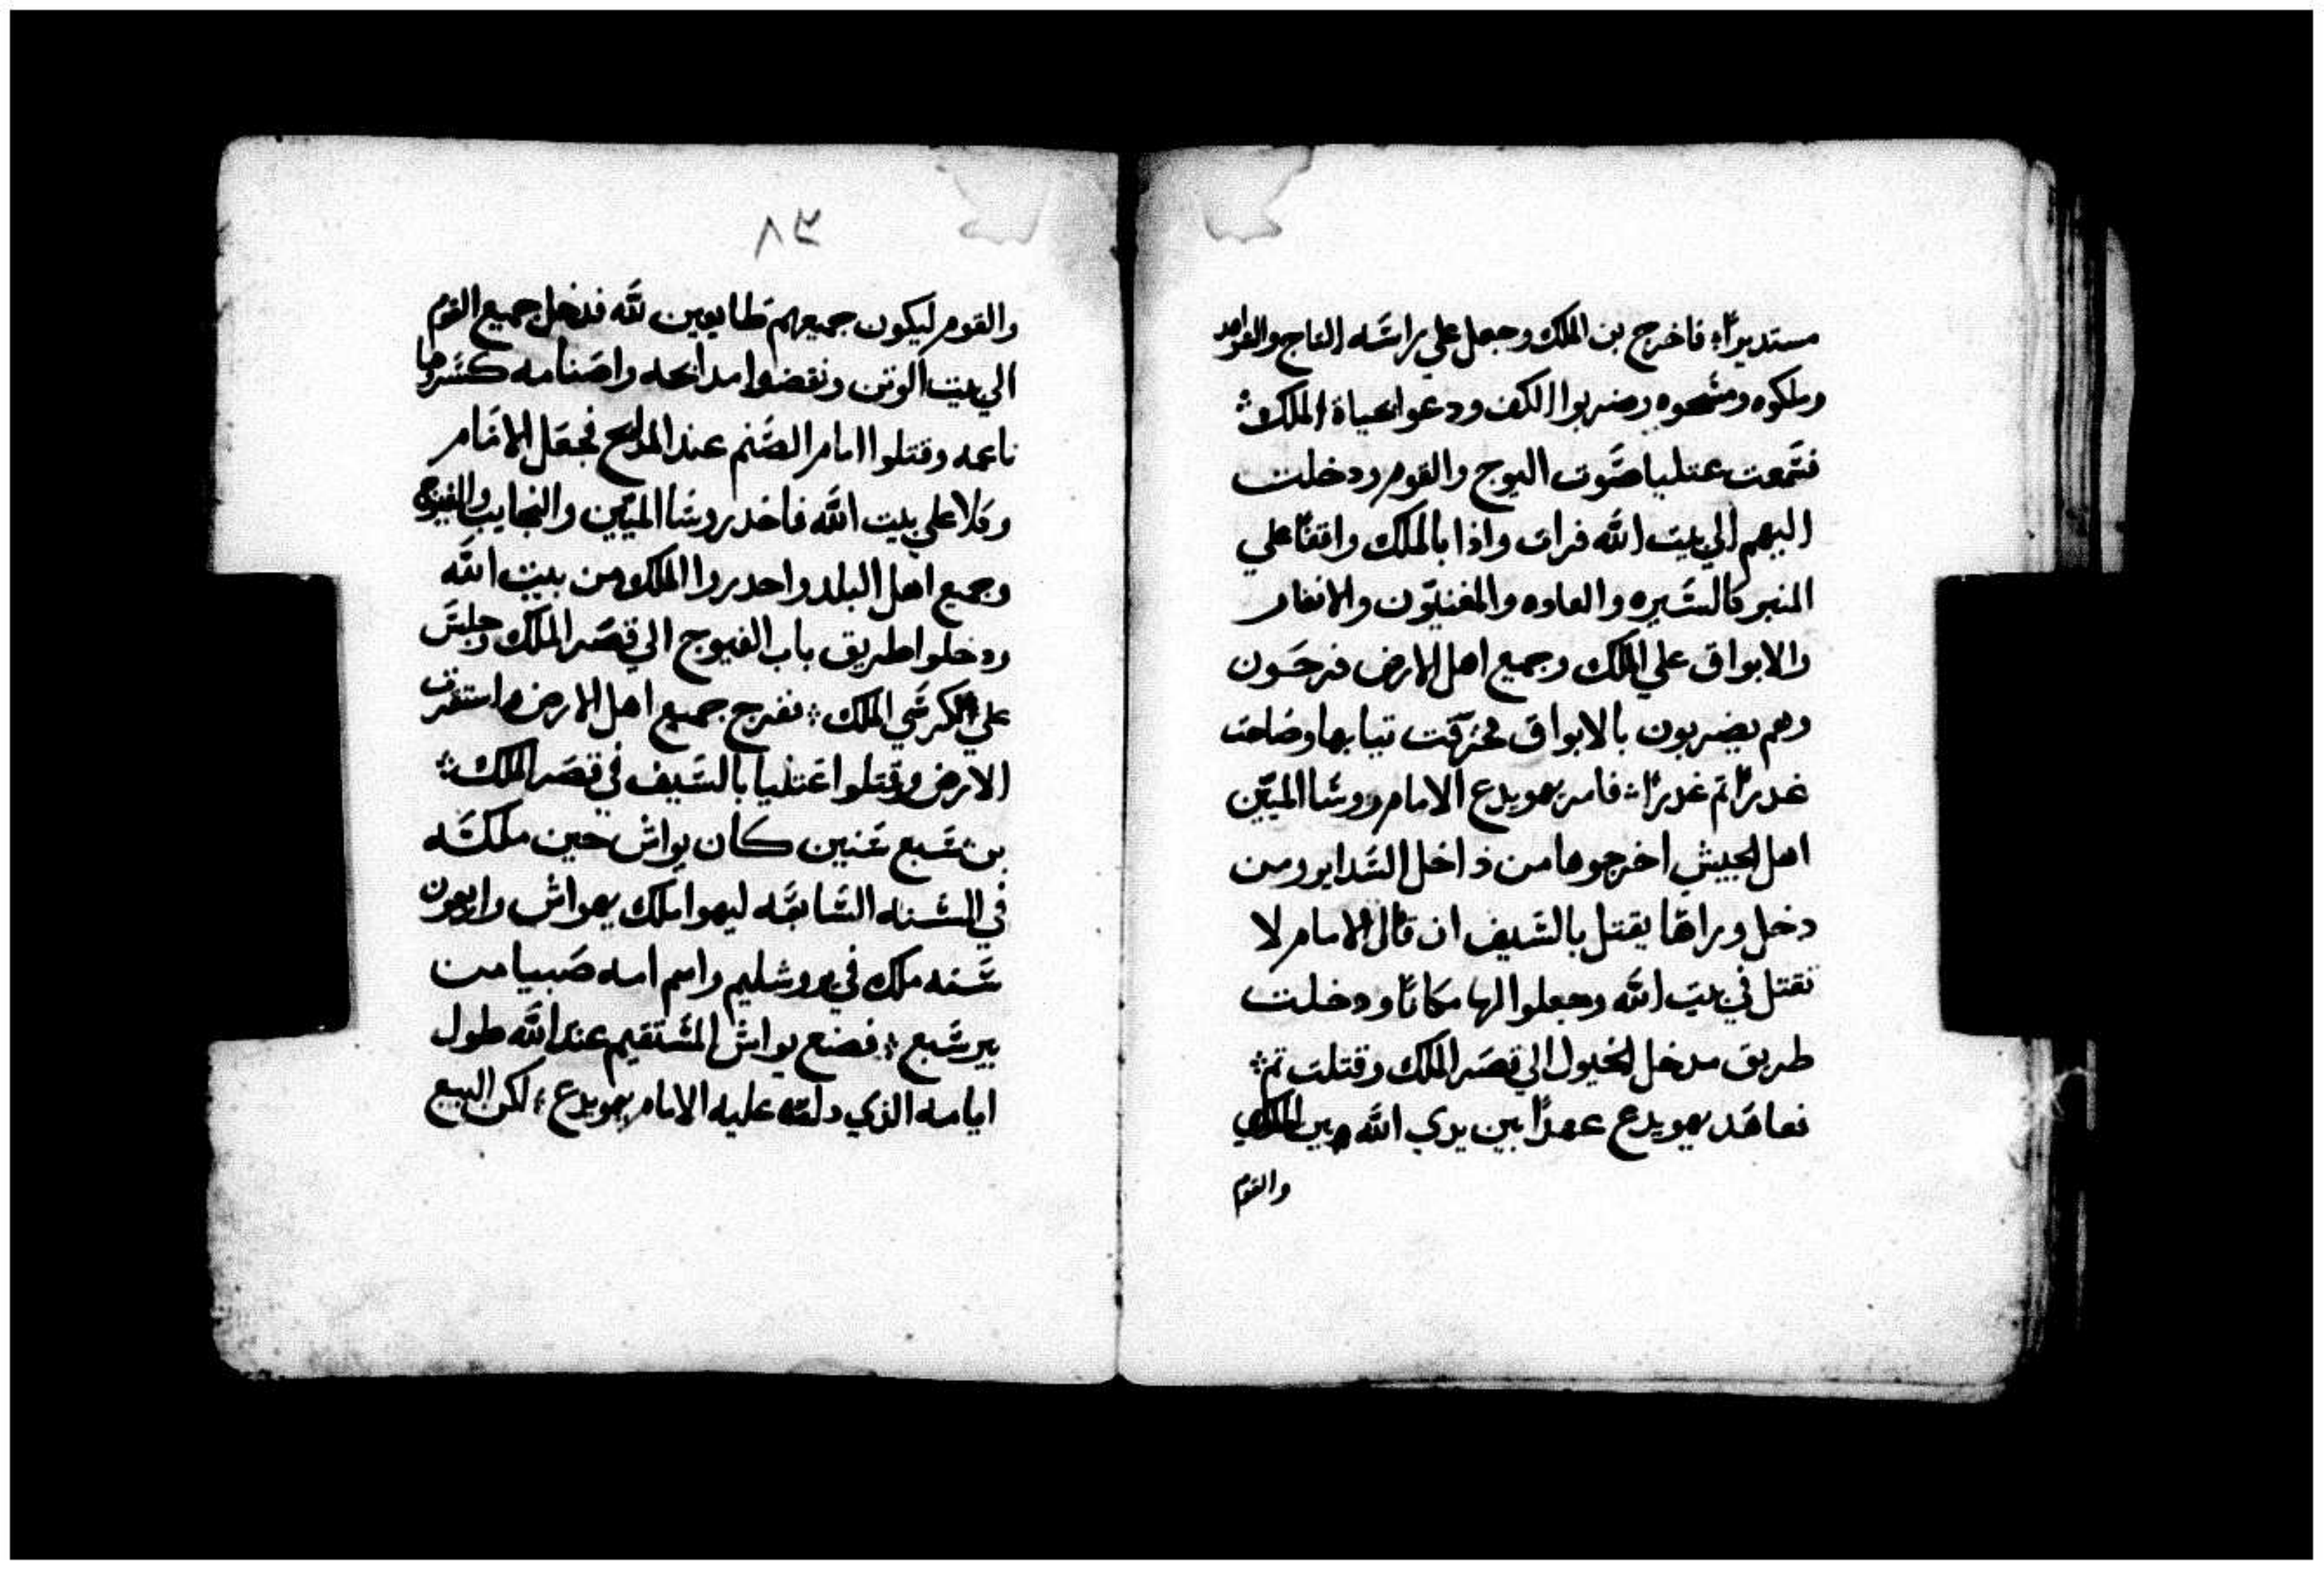 مستديرًا؛ فاخرج بن الملك وجعل علي راسه التاج والقواد
وملكوه ومسحوه وضربوا الكف ودعوا بحياة الملك؛
فسمعت عتليا صوت البوج والقوم ودخلت
اليهم الي بيت الله فرات واذا بالملك واقفًا علي
المنبر كالسيره والعاده والمغنيون والانفار
والابواق علي الملك وجميع اهل الارض فرحون
وهم يضربون بالابواق فخرقت تيابها وصاحت
غدرًا تم غدرًا؛ فامر يهويدع الامام روسا الميين
اهل الجيش اخرجوها من داخل السداير ومن
دخل وراها يقتل بالسيف ان قال الامام لا
تقتل في بيت الله وجعلوا لها مكانًا ودخلت
طريق مدخل الخيول الي قصر الملك وقتلت تم؛
فعاهد يهويدع عهدًا بين يدي الله وبين الملك
والقوم
٨٣
والقوم ليكون جميعهم طايعين لله فدخل جميع القوم
الي بيت الوتن ونقضوا مدابحه واصنامه كسروها
ناعمه وقتلوا امام الصنم عند المدابح فجعل الامام
وكلا علي بيت الله فاخد روسا الميين والنجايب والفيوج
وجميع اهل البلد واحدروا الملك من بيت الله
ودخلوا طريق باب الفيوج الي قصر الملك وجلس
علي كرسي الملك؛ ففرح جميع اهل الارض واستقرت
الارض وقتلوا عتليا بالسيف في قصر الملك؛
بن سبع سنين كان يواش حين ملكه
في السنه السابعه ليهوا ملك يهواش واربعون
سنه ملك في يروشليم واسم امه صبيا من
بير سبع؛ فصنع يواش المستقيم عند الله طول
ايامه الذي دلته عليه الامام يهويدع؛ لكن البيع